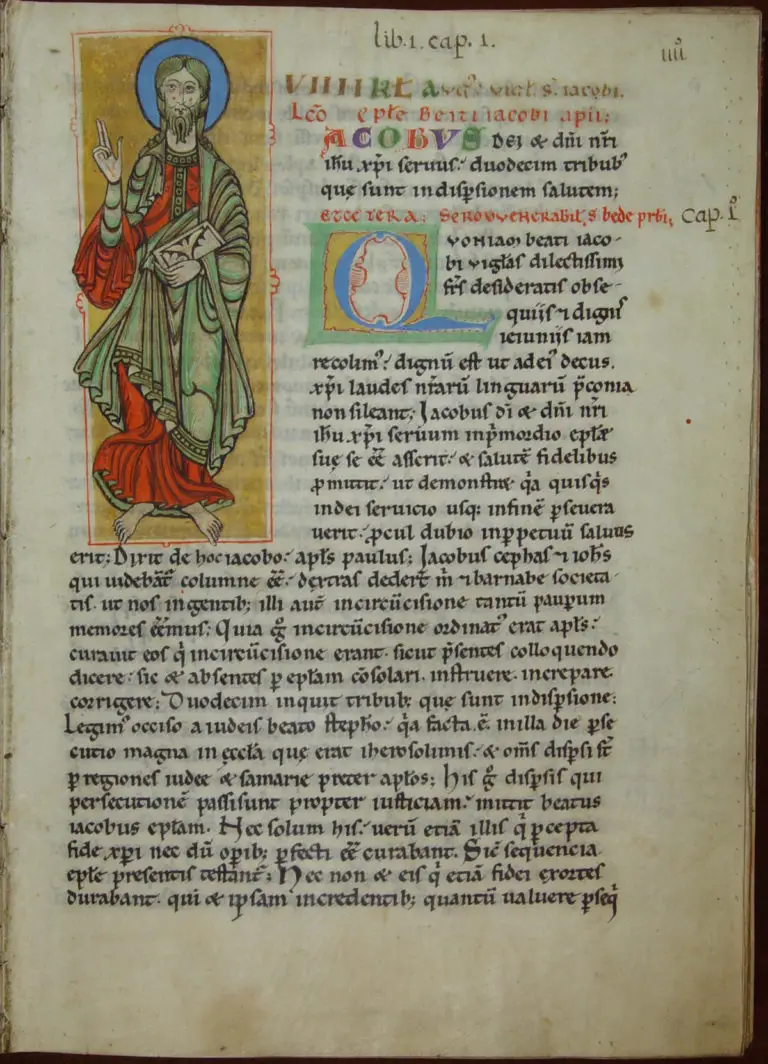 lib. 1. cap. 1.
IIII
VIIII KL AVG. VIGL S. IACOBI.
Lc̄o eplē Beati iacobi apli;
IACOBVS DEI & dn̄i nr̄i
ihū xp̄i seruus. duodecim tribub'
quę sunt in disp̄sionem salutem;
ET CETERA; SERMO VENERABIL̄S bede prb̄i; Cap. I
QVONIAM beati iaco-
bi vigl̄as dilectissimi
fr̄s desideratis obse-
quiis ⁊ dignis
ieiuniis iam
recolim'. dignū est ut ad ei' decus.
xp̄i laudes nr̄arū linguarū p̄conia
non sileant. Jacobus dī & dn̄i nr̄i
ihū xp̄i seruum in p̄mordio eplæ
suę se ēē asserit. & salutē fidelibus
ꝓmittit. ut demonstret q̄a quisq̄s
in dei seruicio usq; in finē p̄seuera
uerit. ꝓcul dubio in ꝑpetuū saluus
erit; Dixit de hoc iacobo. apl̄s paulus; Jacobus cephas ⁊ ioh̄s
qui uidebāt columne ēē. dextras dedert̄ m̄ ⁊ barnabe societa
tis. ut nos in gentib; illi aut̄ in circūcisione tantū pauꝑum
memores eēmus; Quia ḡ in circūcisione ordinat' erat apl̄s.
curauit eos q̄ in circūcisione erant. sicut p̄sentes colloquendo
dicere. sic & absentes ꝑ eplam cōsolari. instruere. increpare.
corrigere; Duodecim inquit tribub; quę sunt in disp̄sione;
Legim' occiso a iudeis beato stepho. q̄a facta .ē. in illa die ꝑse
cutio magna in eccl̄a que erat iherosolimis. & om̄s disꝑsi st̄
ꝑ regiones iudee & samarie preter aplos; His ḡ disꝑsis qui
persecutionē passi sunt propter iusticiam. mittit beatus
iacobus eplam. Nec solum his. uerū etiā illis q̄ ꝑcepta
fide xp̄i nec dū opib; ꝑfecti ēē curabant. Sic̄ sequencia
eple presentis testant̄; Nec non & eis q̄ etiā fidei exortes
durabant. qui & ipsam in credentib; quantū ualuere ꝑseq̄